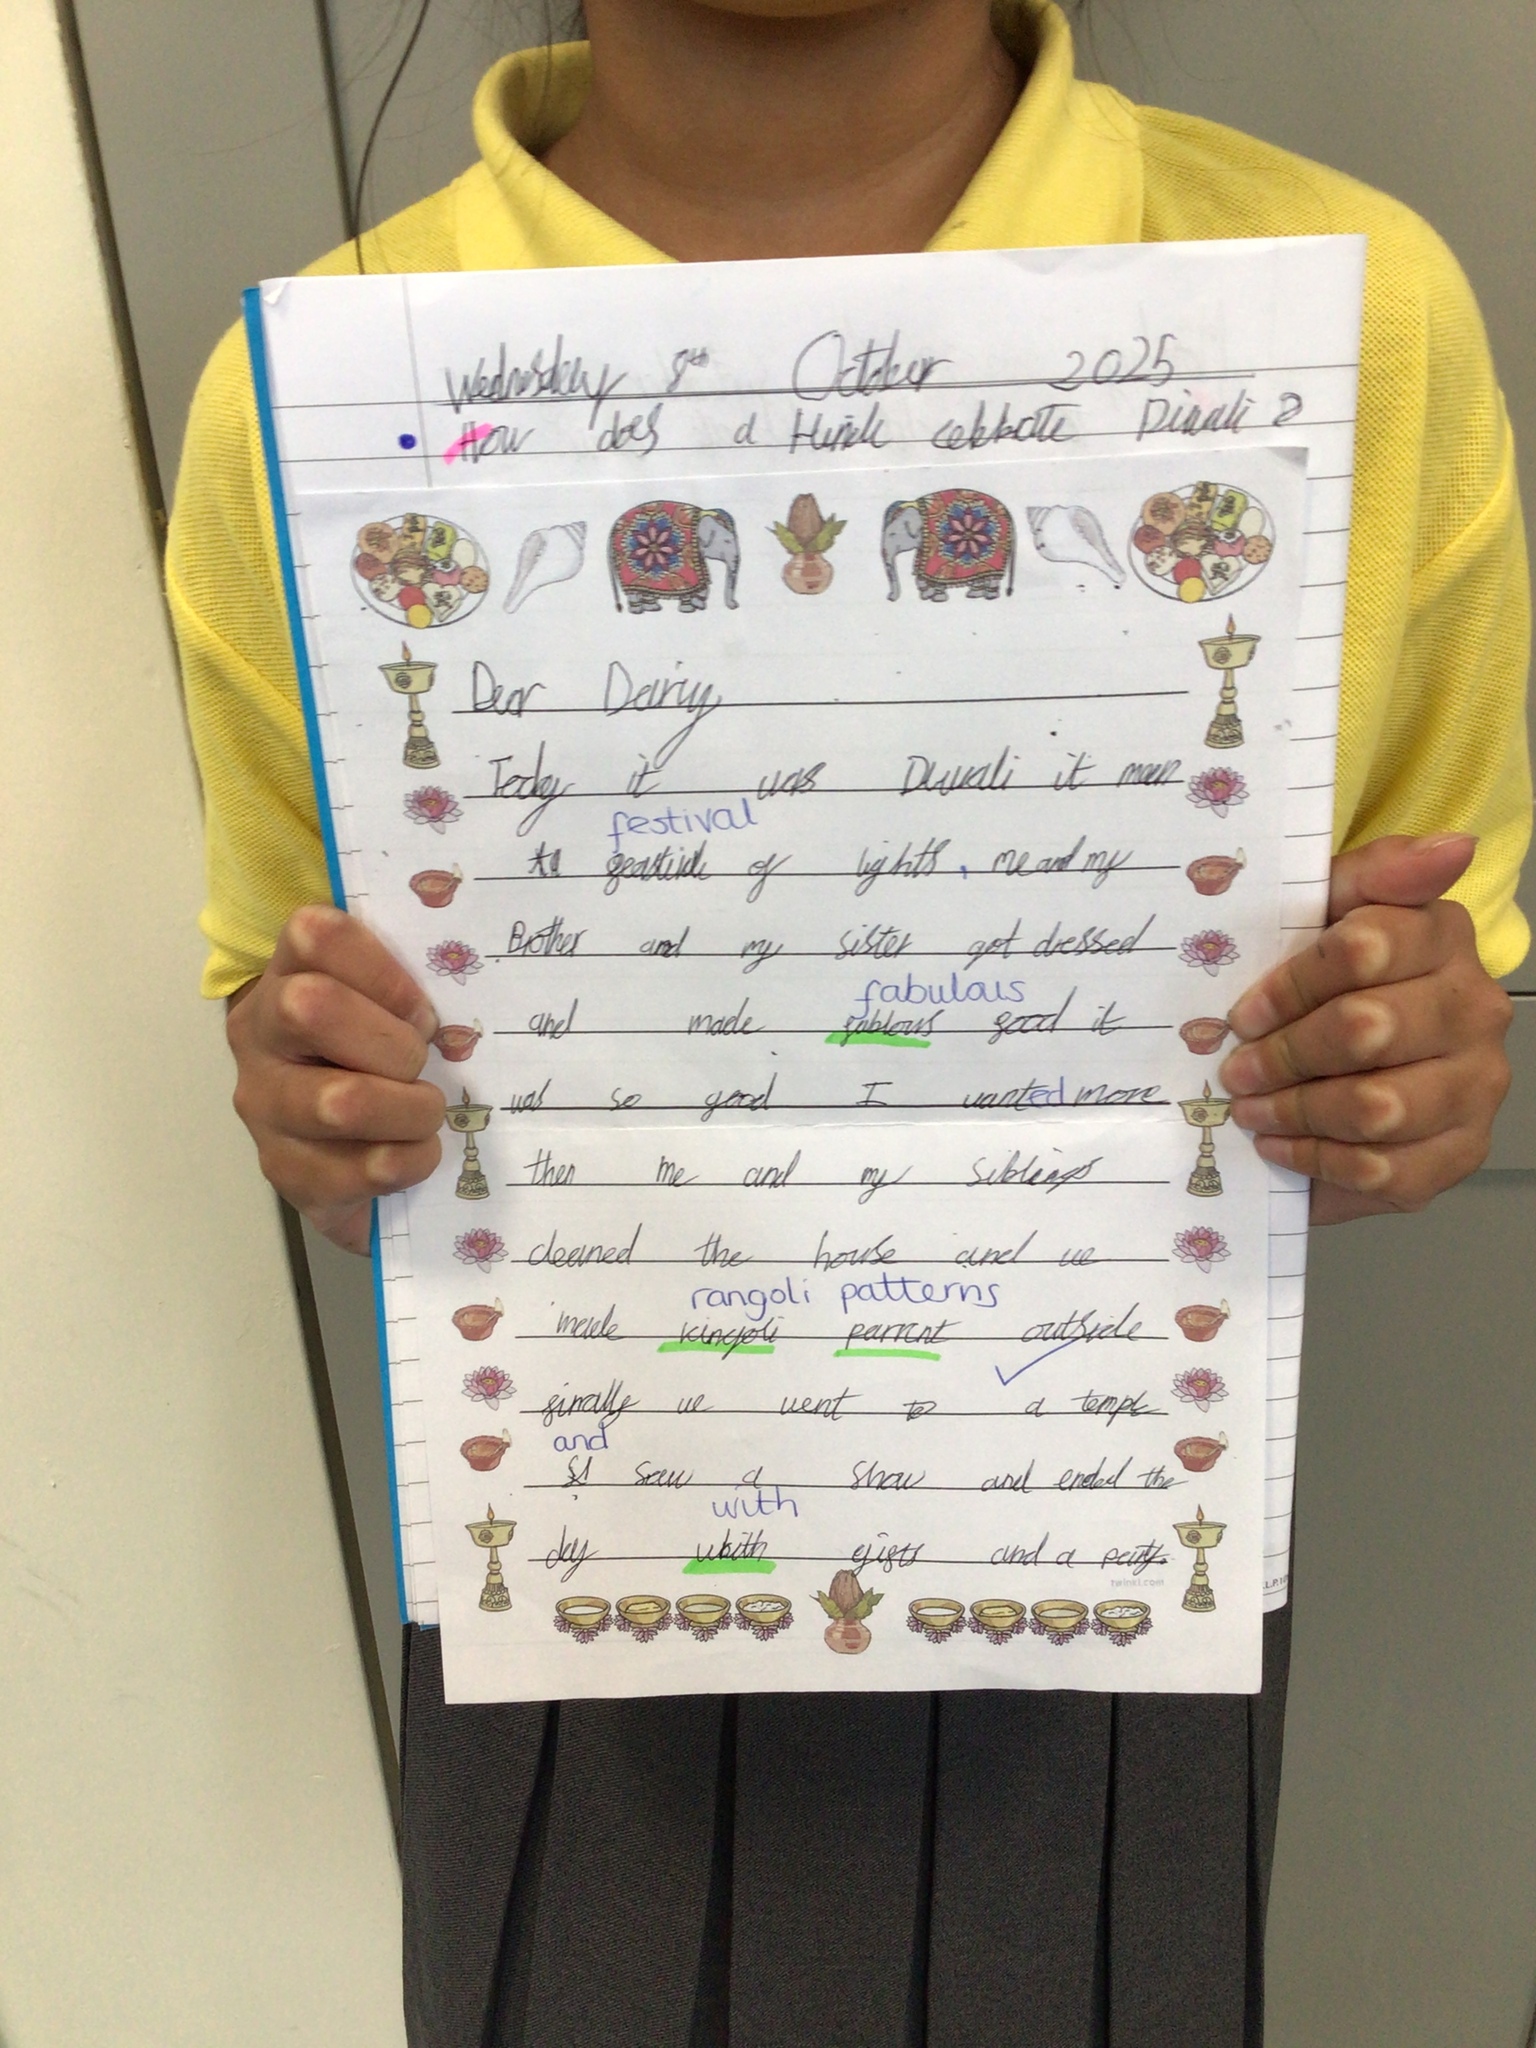 Wednesday 8th October 2025
How does a Hindu celebrate Diwali?
Dear Dairiy
Today it was Diwali it mean
festival
of lights, me and my
Brother and my sister got dressed
fabulous
and made fablous good it
was so good I wanted more
then me and my siblings
cleaned the house and we
rangoli patterns
made kingoli parrent outside
finally we went to a temple
and
saw a show and ended the
with
day whith gifts and a party.
twinkl.com